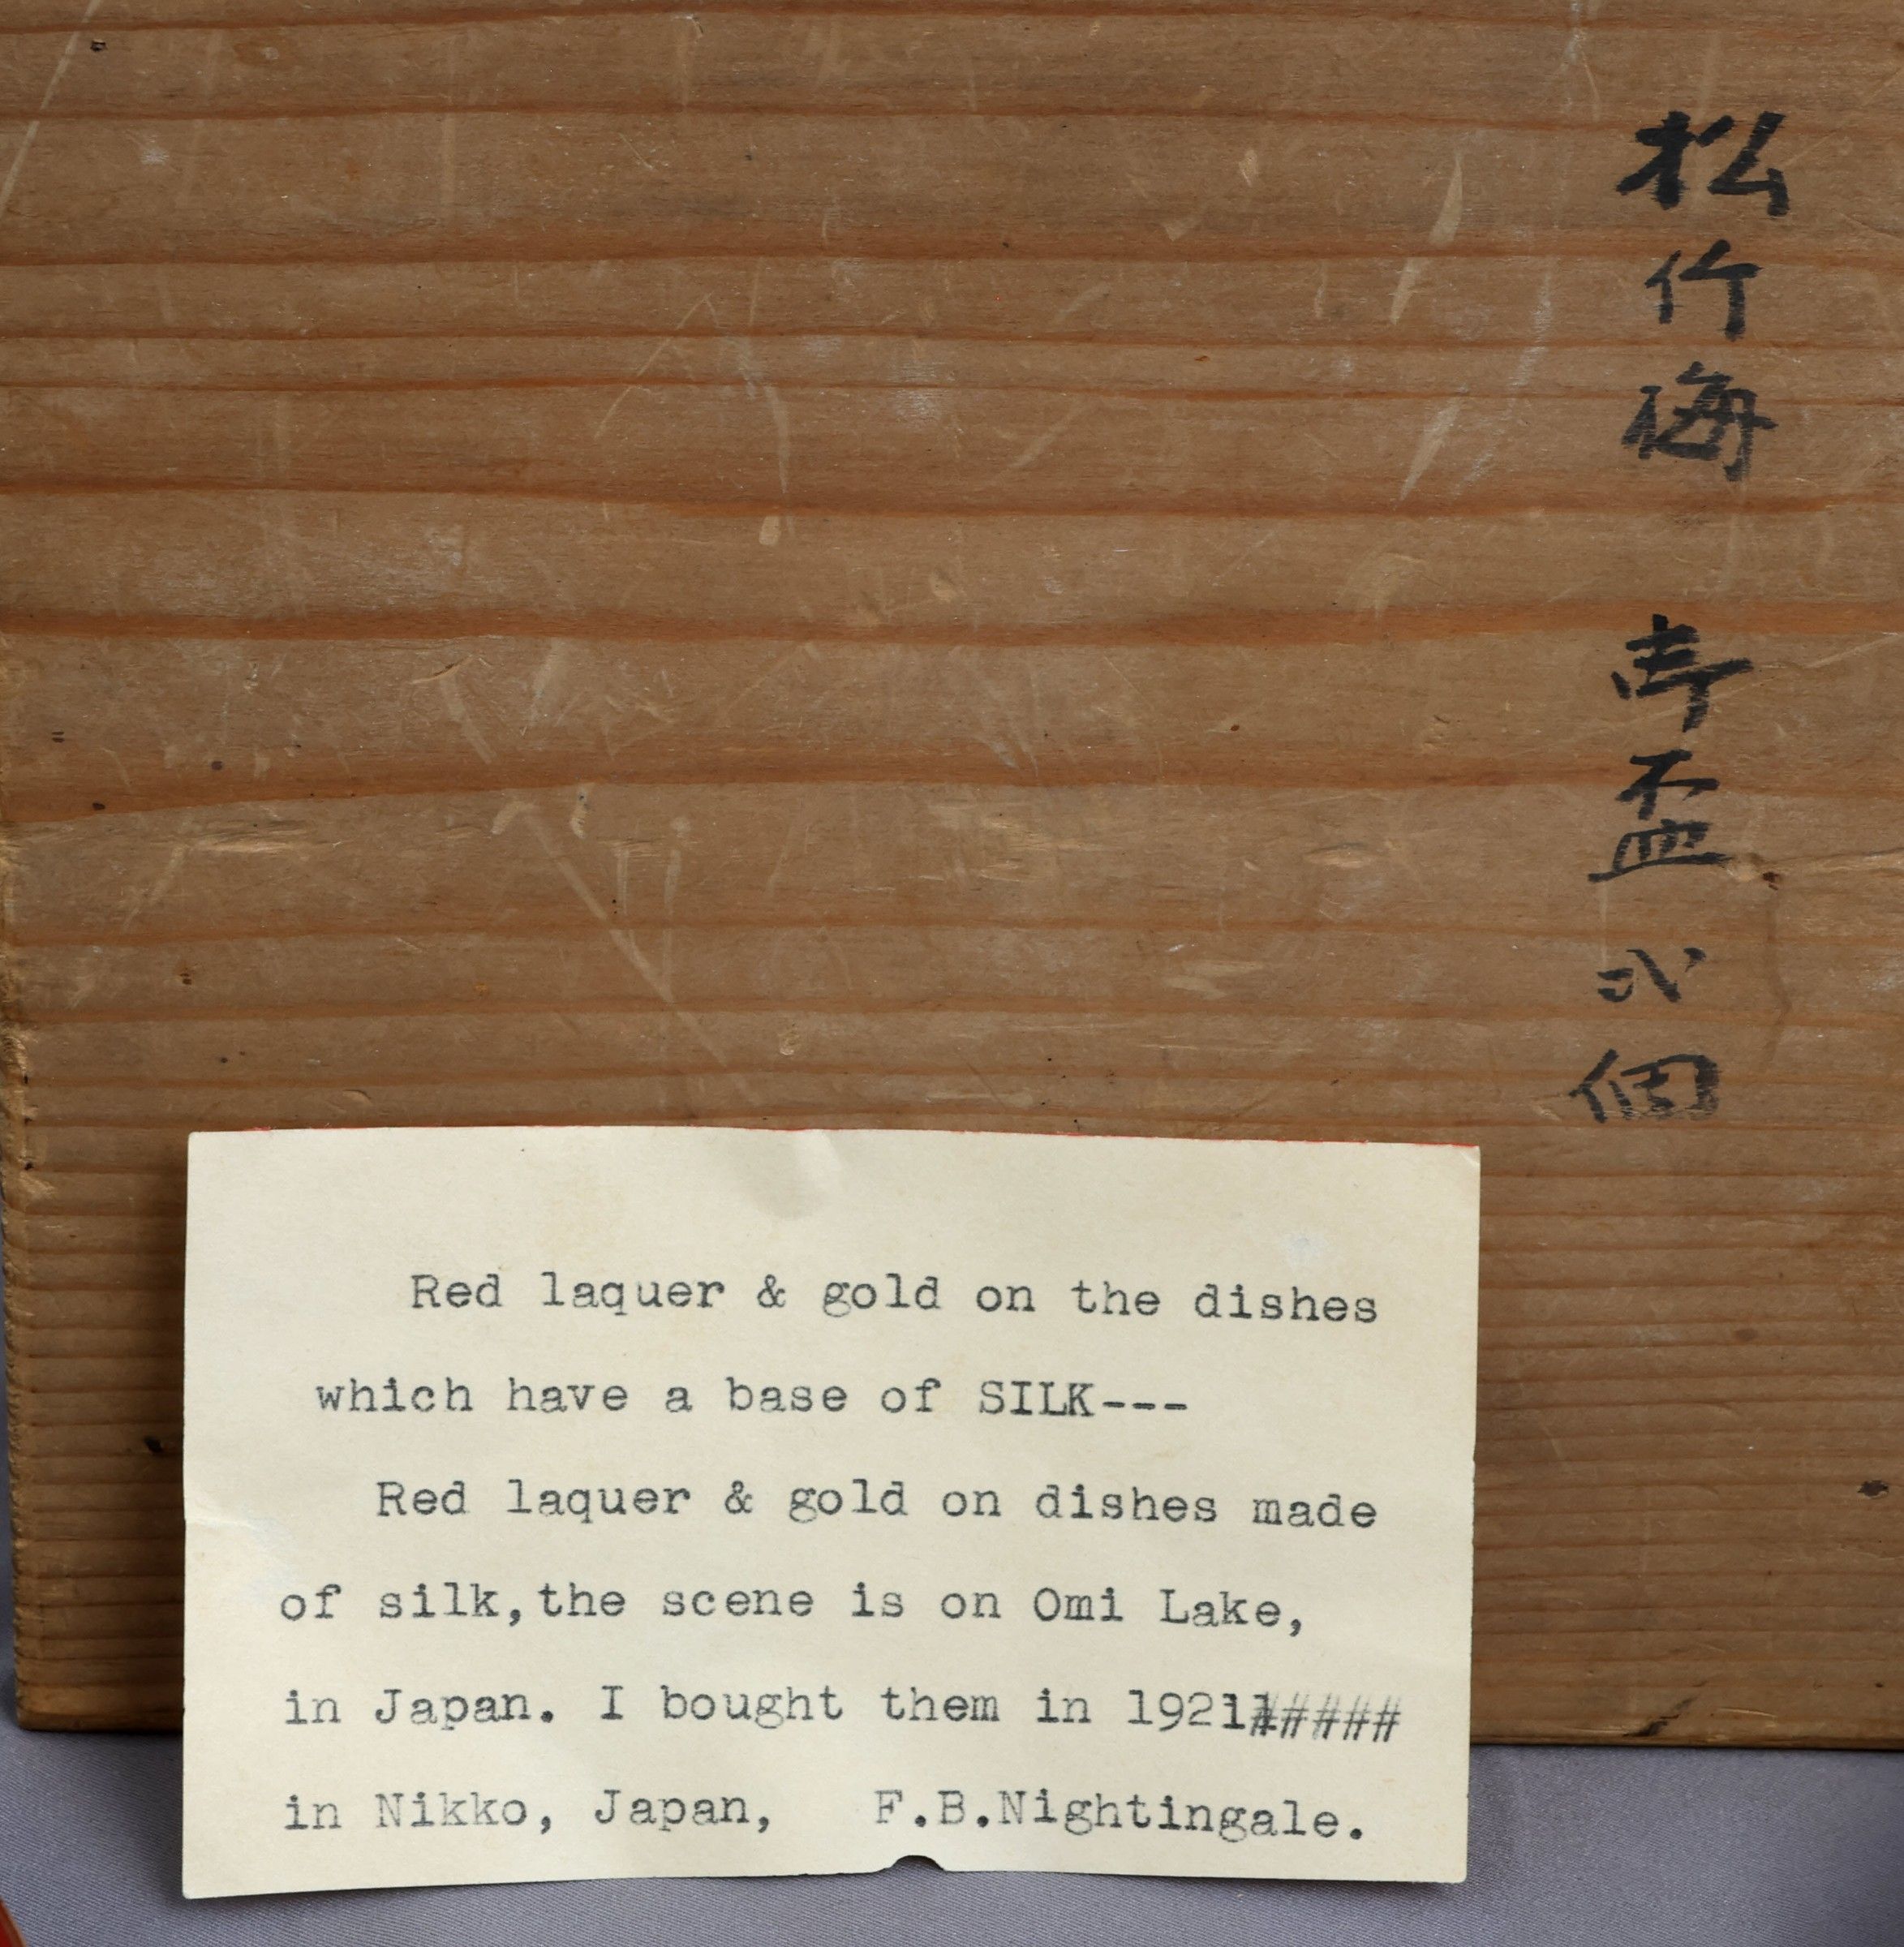 松竹梅 寿盃 弍個
Red laquer & gold on the dishes
which have a base of SILK---
Red laquer & gold on dishes made
of silk,the scene is on Omi Lake,
in Japan. I bought them in 1921#####
in Nikko, Japan, F.B.Nightingale.